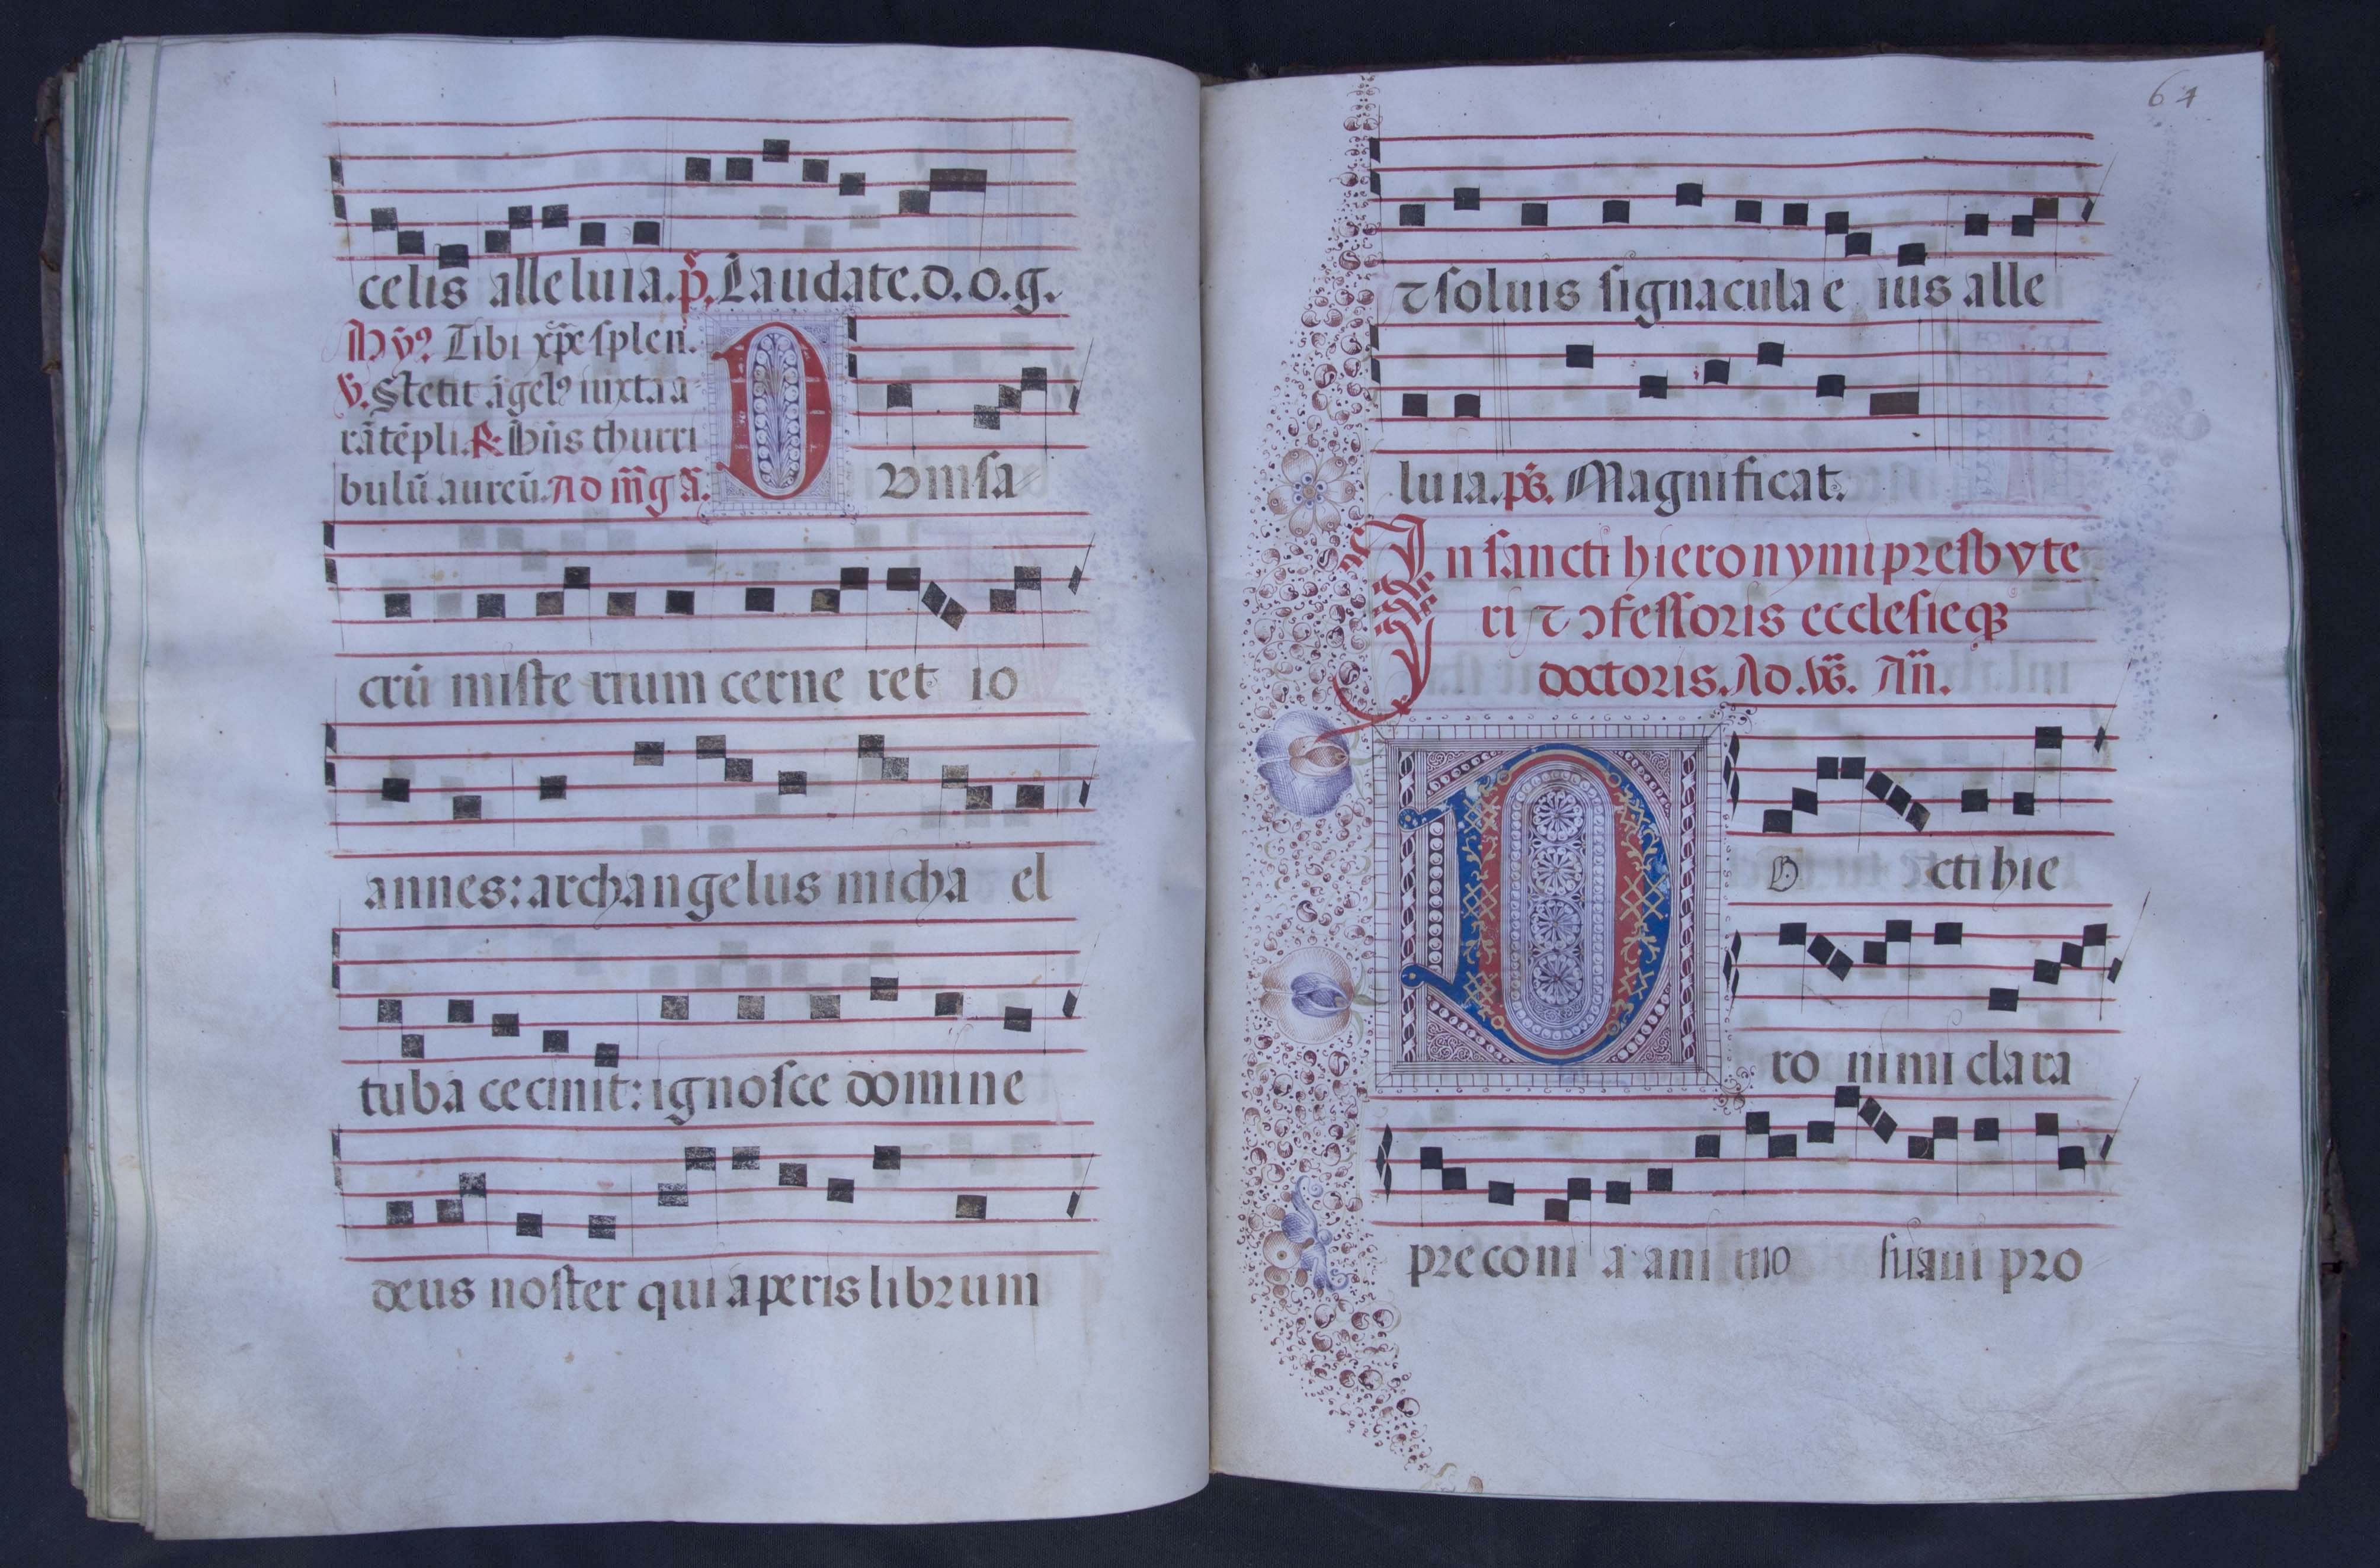 celis alleluia. p̃. Laudate. d. o. g.
Hyꝰ Tibi xp̃e splen.
℣. Stetit āgelꝰ iuxta a
rā tēpli. ℟ Hñs thurri
bulū aureū. Ad m̃g ã.
D Vm sa
crū misterium cerneret io
annes: archangelus michael
tuba cecinit: ignosce domine
deus noster qui aperis librum
64
⁊ soluis signacula eius alle
luia. ps̃. Magnificat.
In sancti hieronymi presbyte
ri ⁊ ↄfessoris ecclesieqꝫ
doctoris. Ad. Vs̃. Añ.
D o cti hie
ronimi clara
preconia animo suaui pro